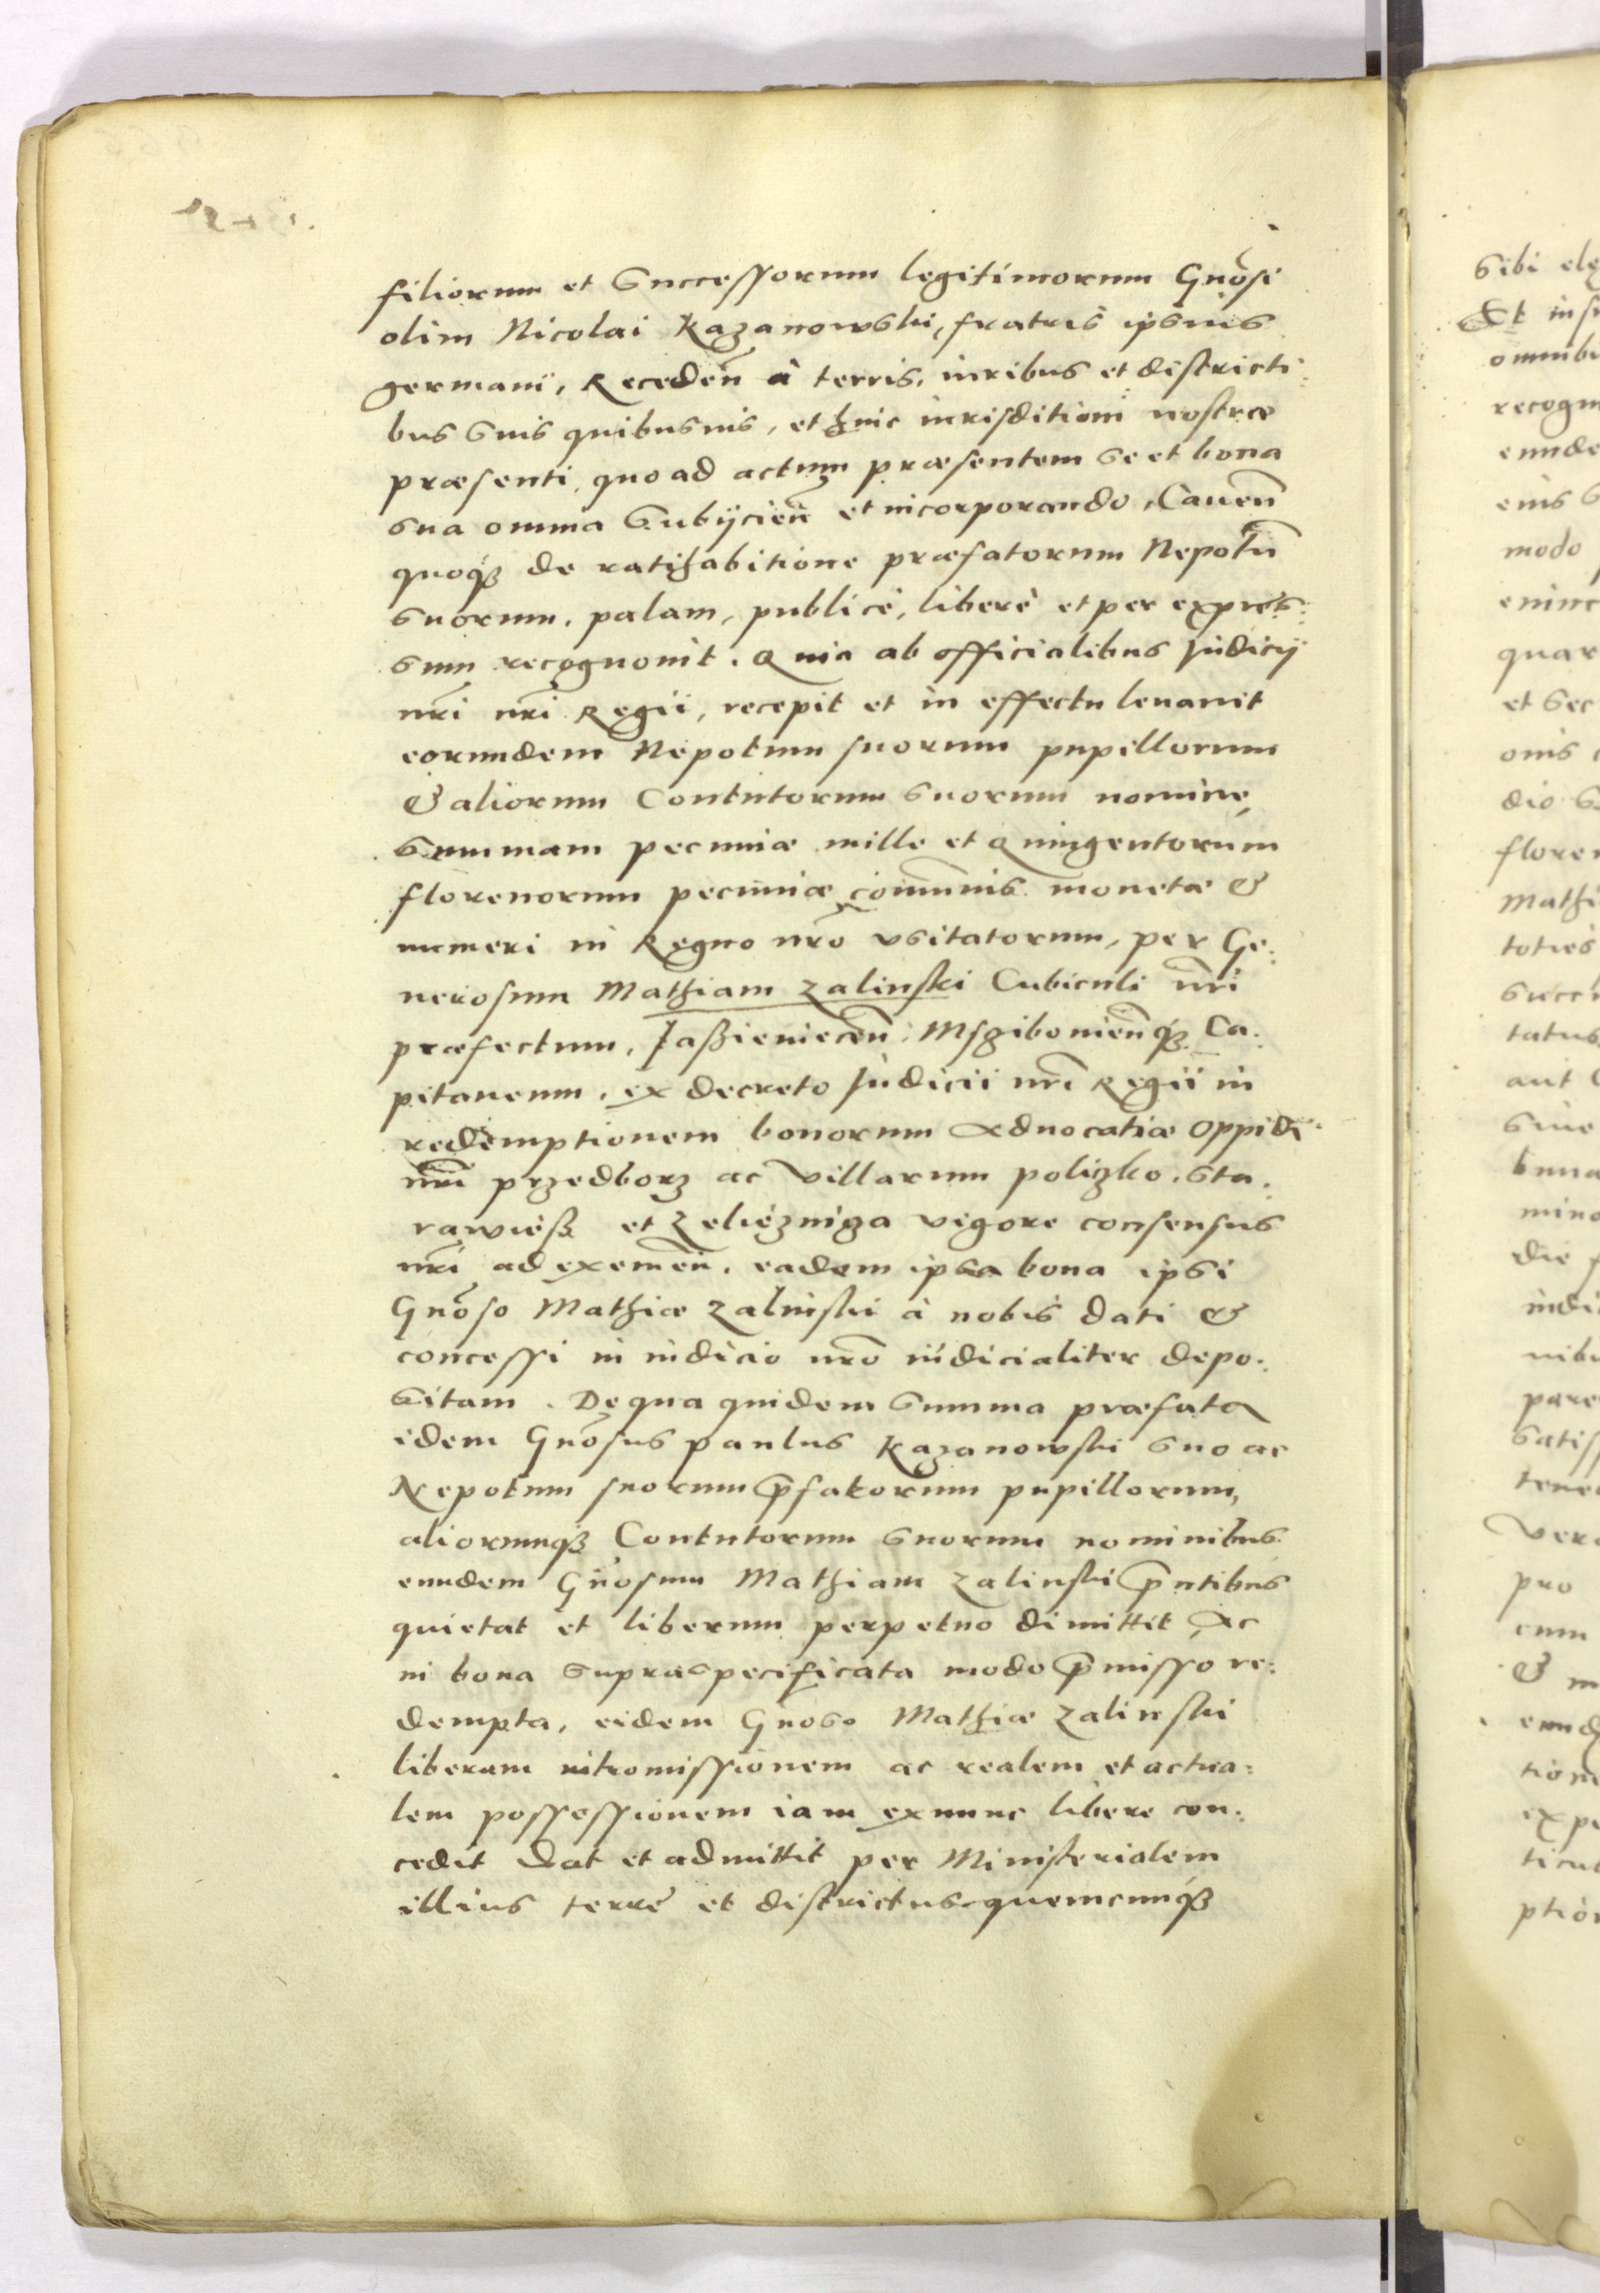 filiorum et Successorum legitimorum Gnōsi
olim Nicolai Kazanowski, fratris ipsius
germani, Receden̄ à terris, iuribus et districti:
bus suis quibusuis, et huic iurisditioni nostræ
præsenti, quo ad actum præsentem se et bona
sua omnia Subÿcien̄ et incorporando, Cauen̄
quoqȝ de ratihabitione præfatorum Nepotū
suorum, palam, publicè, liberè et per expres:
sum recognouit. Quia ab officialibus Judicÿ
nr̄i nr̄i Regii, recepit et in effectu leuauit
eorundem Nepotum suorum pupillorum
& aliorum Contutorum suorum nomine,
Summam pecuniæ mille et Quingentorum
florenorum pecuniæ com̄unis monetæ &
numeri in Regno nr̄o vsitatorum, per Ge:
nerosum Mathiam Zalinski Cubiculi nr̄i
præfectum, Jaßieniecen̄, Msczibouien̄qȝ Ca:
pitaneum, ex decreto Judicii nr̄i Regii in
redemptionem bonorum Aduocatiæ Oppidi
nr̄i przedborz ac villarum policzko, Sta:
rawieß et Zeliezniza vigore consensus
nr̄i ad eximen̄. eadem ipsa bona ipsi
Gnōso Mathiæ Zalinski à nobis dati &
concessi in iudicio nr̄o iudicialiter depo:
sitam. De qua quidem Summa præfata
idem Gnōsus paulus Kazanowski suo ac
Nepotum suorum p̄fatorum pupillorum,
aliorumqȝ Contutorum suorum nominibus
eundem Gnōsum Mathiam Zalinski p̄ntibus
quietat et liberum perpetuo dimittit Ac
in bona supraspecificata modo p̄misso re:
dempta, eidem Gnoso Mathiæ Zalinski
liberam intromissionem ac realem et actua:
lem possessionem iam exnunc libere con:
cedit Dat et admittit per Ministerialem
illius terrę et districtus quemcunqȝ
sibi
Et
recogn
modo
quar
et sec
florer
Mathi
toties
tatus
aut
die
pro
cum